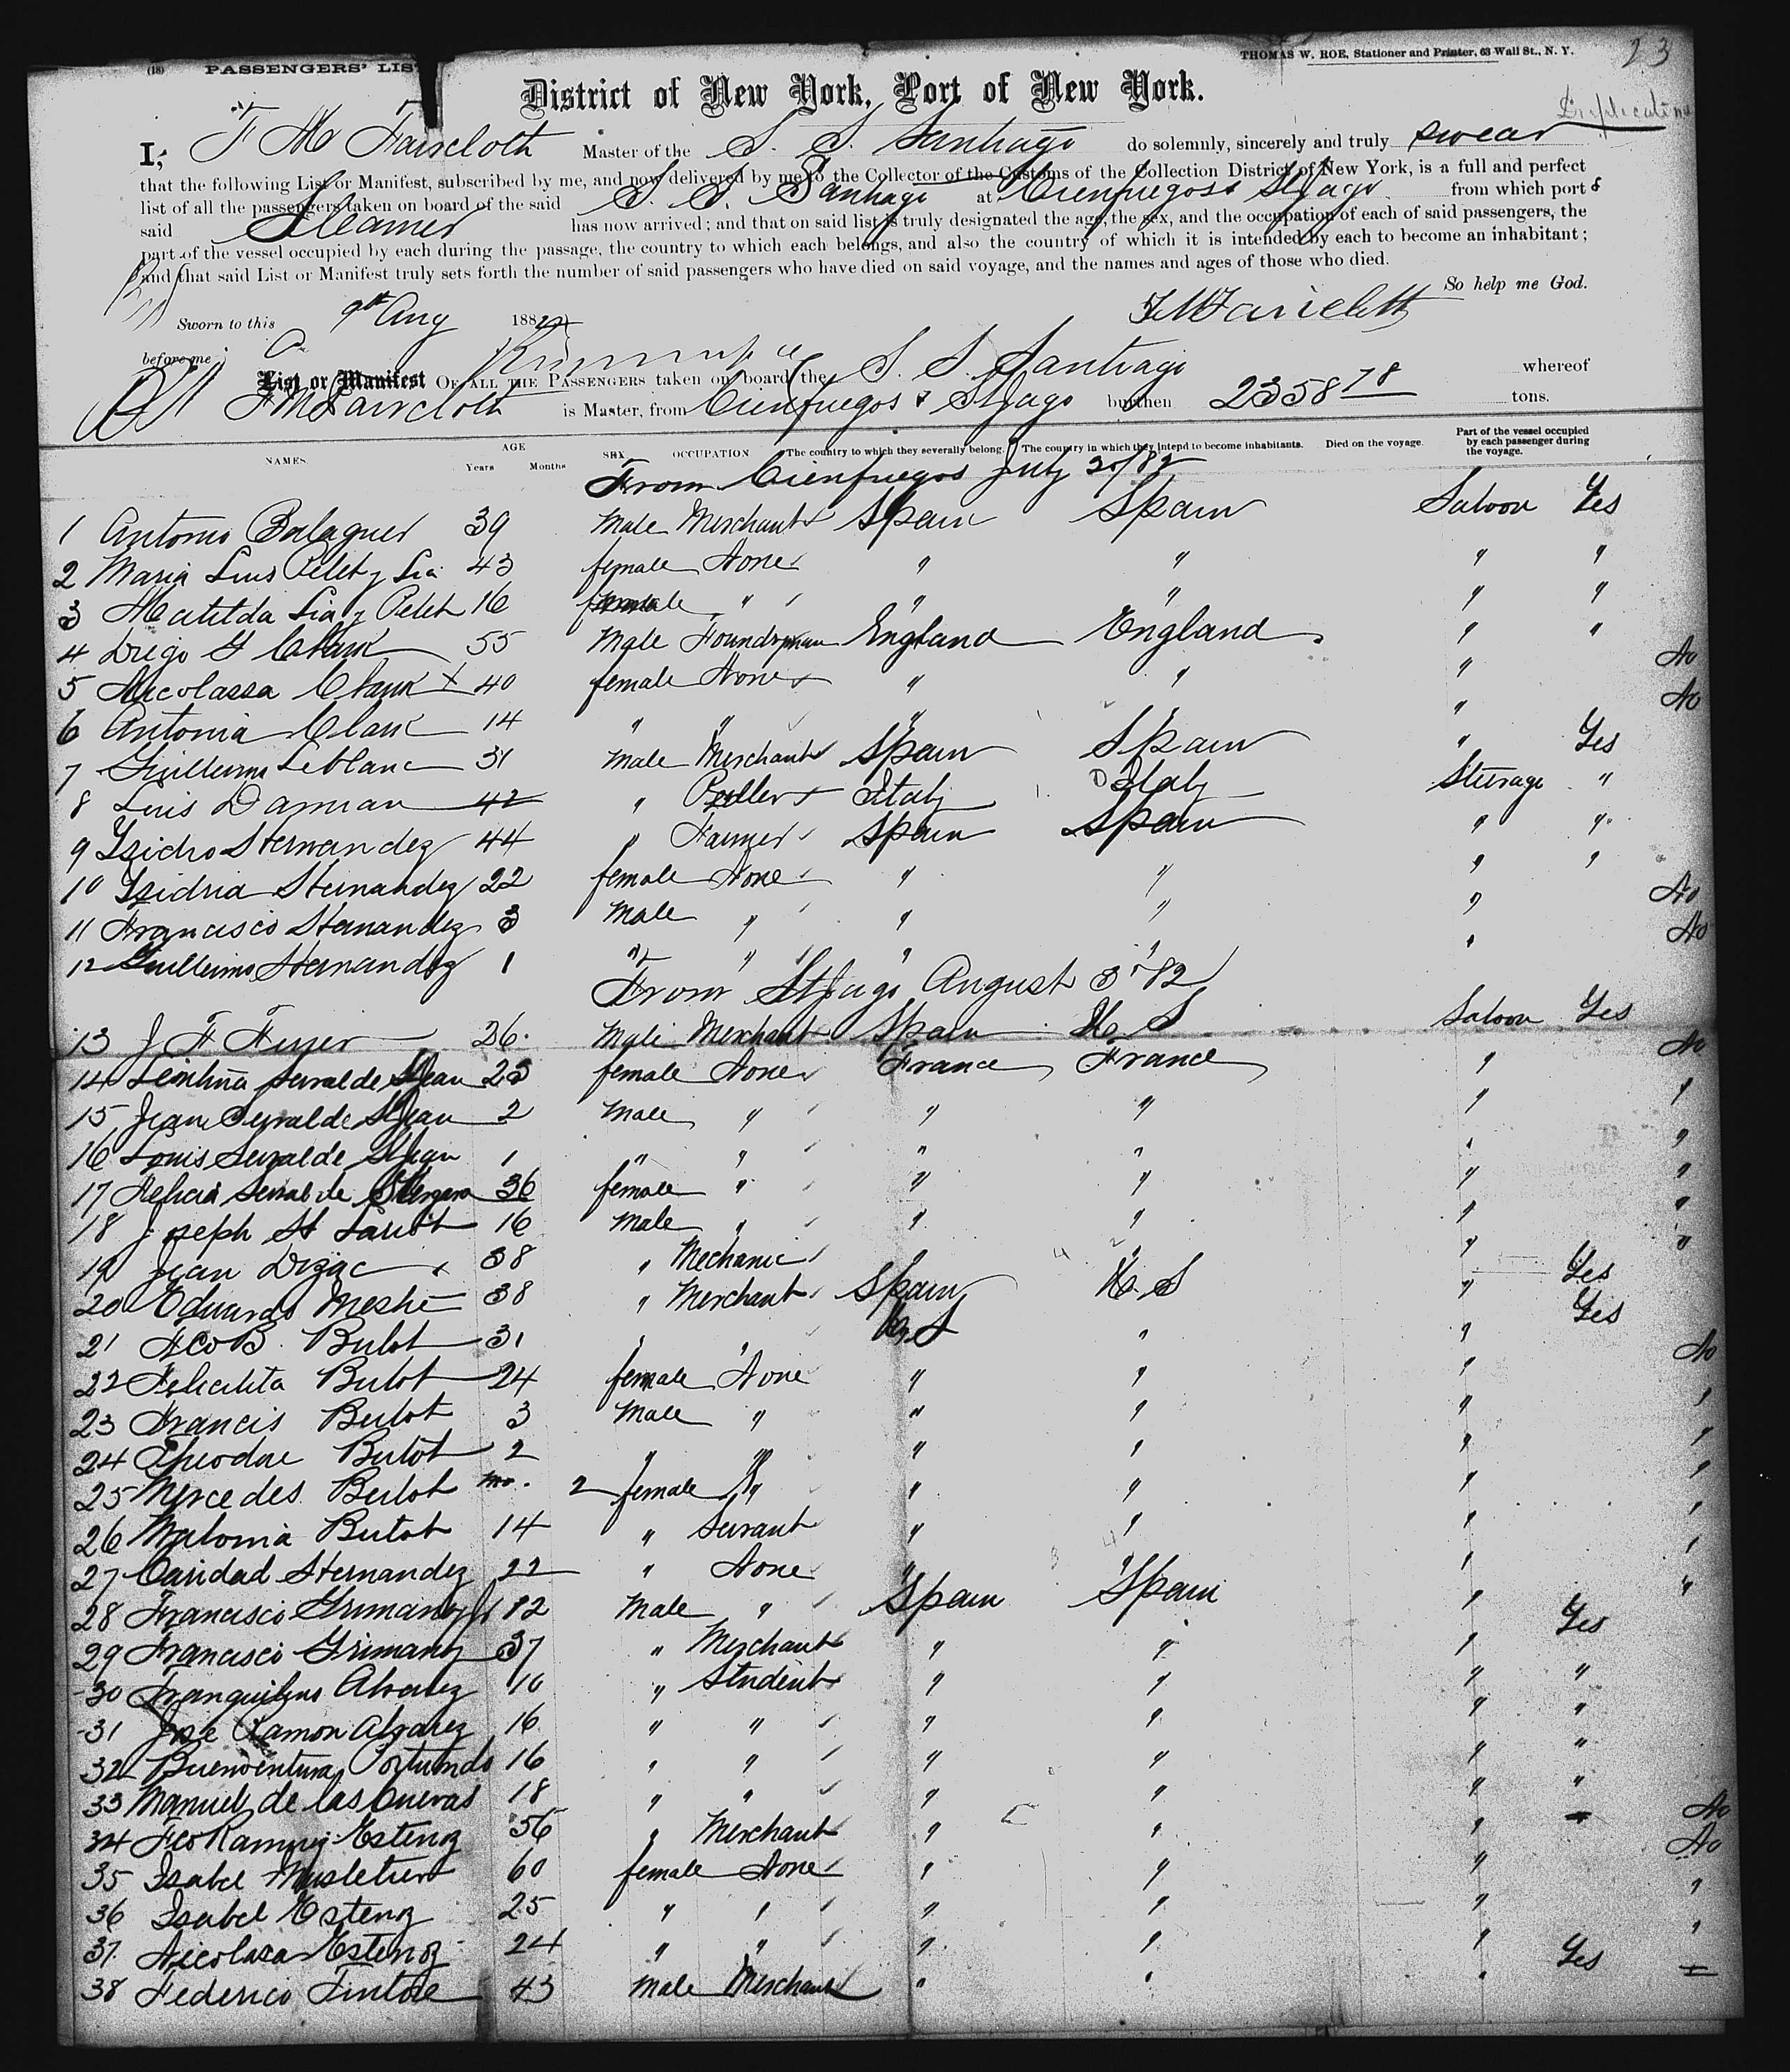 (18) PASSENGERS' LIST
THOMAS W. ROE, Stationer and Printer, 63 Wall St., N. Y.
23
District of New York, Port of New York.
I, F M Faircloth Master of the S. S. Santiago do solemnly, sincerely and truly swear
that the following List or Manifest, subscribed by me, and now delivered by me to the Collector of the Customs of the Collection District of New York, is a full and perfect
list of all the passengers taken on board of the said S. S. Santiago at Cienfuegos & St Jago from which port s
said Steamer has now arrived; and that on said list is truly designated the age, the sex, and the occupation of each of said passengers, the
part of the vessel occupied by each during the passage, the country to which each belongs, and also the country of which it is intended by each to become an inhabitant;
and that said List or Manifest truly sets forth the number of said passengers who have died on said voyage, and the names and ages of those who died.
So help me God.
Sworn to this 9th Aug 1882
F M Faircloth
before me
List or Manifest OF ALL THE PASSENGERS taken on board the S. S. Santiago whereof
F M Faircloth is Master, from Cienfuegos & St Jago burthen 2358 78 tons.
NAMES AGE Years Months SEX OCCUPATION The country to which they severally belong. The country in which they intend to become inhabitants. Died on the voyage. Part of the vessel occupied by each passenger during the voyage.
From Cienfuegos July 30/82
1 Antonio Balaguer 39 Male Merchant Spain Spain Saloon Yes
2 Maria Luis Pelet y Lia 43 female None " " " "
3 Matilda Lia y Pelet 16 female " " " " "
4 Diego G Clark 55 Male Foundryman England England " "
5 Nicolassa Clark 40 female None " " " No
6 Antonia Clark 14 " " " " " No
7 Guillermo Leblanc 31 Male Merchant Spain Spain " Yes
8 Luis Damian 42 " Pedler Italy Italy Steerage "
9 Isidro Hernandez 44 " Farmer Spain Spain " "
10 Isidria Hernandez 22 female None " " " "
11 Francisco Hernandez 3 Male " " " " No
12 Guillermo Hernandez 1 " " " " " No
From St Jago August 3 82
13 J F Ferrer 36 Male Merchant Spain U S Saloon Yes
14 St Jean 23 female None France France " No
15 Jean St Jean 2 Male " " " " "
16 Louis St Jean 1 " " " " " "
17 Felicia 36 female " " " " "
18 Joseph 16 Male " " " " "
19 Jean Dizac 38 " Mechanic " " " "
20 Eduardo Mestre 38 " Merchant Spain U. S " Yes
21 Fco B. Bulot 31 " " U. S " " Yes
22 Felicitita Bulot 24 female None " " " No
23 Francis Bulot 3 Male " " " " "
24 Theodore Bulot 2 " " " " " "
25 Mercedes Bulot mo. 2 female " " " " "
26 Bulot 14 " Servant " " " "
27 Caridad Hernandez 22 " None " " " "
28 Francisco Grimany Jr 12 Male " Spain Spain " "
29 Francisco Grimany 37 " Merchant " " " Yes
30 Tranquilino Alvarez 10 " Student " " " "
31 Jose Ramon Alvarez 16 " " " " " "
32 Buenventura Portuondo 16 " " " " " "
33 Manuel de las Cuevas 18 " " " " " "
34 Fco Ramirez Estenoz 56 " Merchant " " " No
35 Isabel 60 female None " " " No
36 Isabel Estenoz 25 " " " " " "
37 Nicolasa Estenoz 24 " " " " " "
38 Federico Tintore 43 Male Merchant " " " Yes